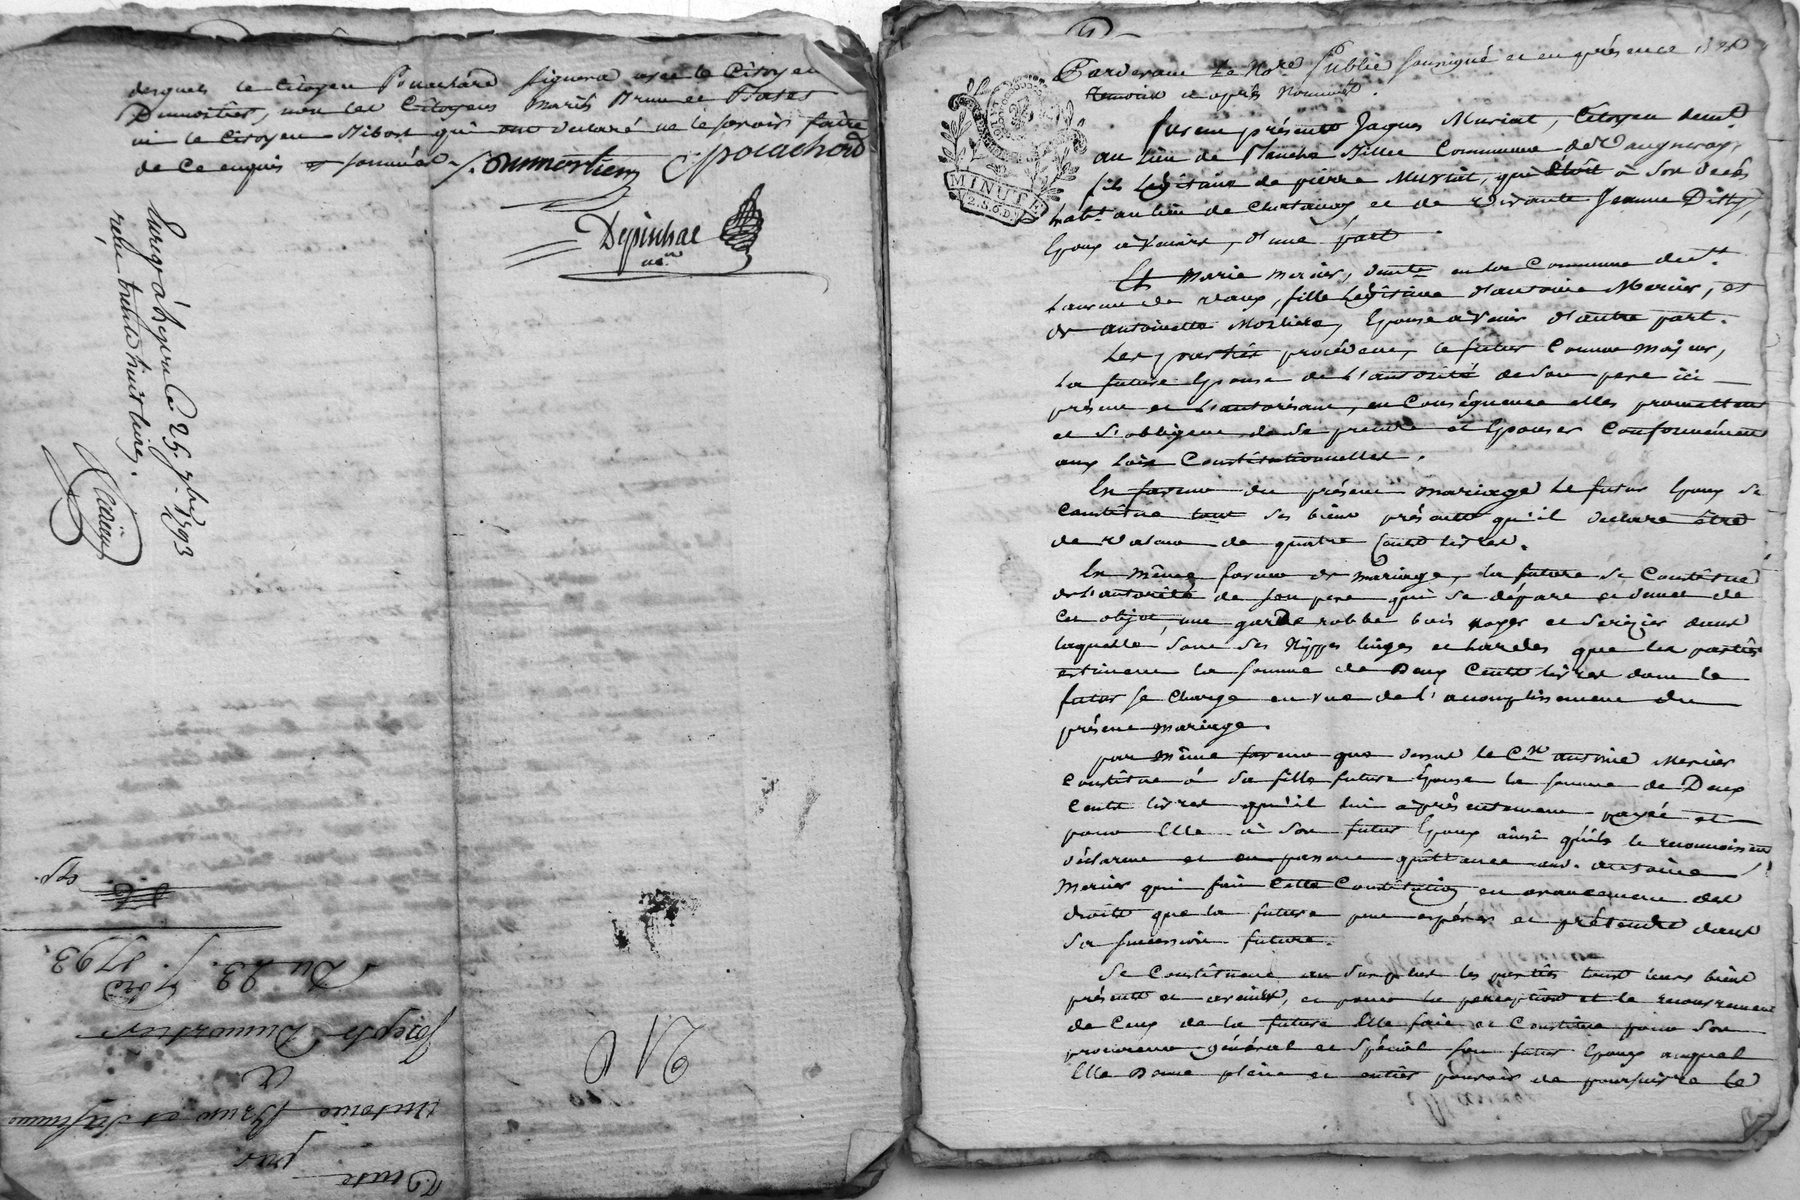 desquels le Citoyen Pouachard signera avec le Citoyen
Dumortier, non les Citoyens Marie Brun et
ni le Citoyen Ribost qui ont déclaré ne le savoir faire
de ce enquis et sommés.
J. Dumortier C pouachord
Depinhac
nre
Enregr. à le 25. 7bre 1793
reçu trente huit livres.
Du 23. 7bre
1793.
Joseph Dumortier
a
Antoine Brun et
par
Vente
Pardevant le Nore Public soussigné et en présence des
temoins ci après Nommés.
MINUTE
2. S. 6. D.
furent présents Jaques Muriat, Citoyen demt.
au lieu de Planche Billee Commune de Vaugneray,
fils Légitime de pierre Muriat, qui étoit à son decès
habt. au lieu de et de vivante Jeanne
Epoux à venir, d'une part
Et Marie Mercier, demte en la Commune de St.
Laurent de vaux, fille Légitime d'antoine Mercier, et
de antoinette Epouse à venir d'autre part.
Les parties procédent, le futur Comme majeur,
La future Epouse de l'autorité de son pere ici
présent et l'autorisant, en Conséquence elles promettent
et s'obligent de se prendre et Epouser Conformément
aux loix Constitutionnelles.
En faveur du présent mariage le futur Epoux se
Constitue tous ses biens présents qu'il declare être
de valeur de quatre Cents livres.
En même faveur de mariage, la future se Constitue
de l'autorité de son pere qui se départ et démet de
Cet objet, une garde robbe bois noyer et serizier dans
laquelle sont ses Nippes linges et hardes que les parties
estiment la somme de Deux Cents livres dont le
futur se Charge en vue de l'accomplissement du
présent mariage.
par même faveur que dessus le Cn antoine Mercier
Constitue à sa fille future Epouse la somme de Deux
Cents livres qu'il lui a présentement payée et
pour Elle à son futur Epoux ainsi qu'ils le reconnoissent
déclarent et en passent quittance aud. antoine
Mercier qui fait Cette Constitution en avancement des
droits que la future peut espérer et prétendre dans
sa succession future.
Se Constituent au surplus les parties tous leurs biens
présents et avenirs, et pour la perception et le recouvrement
de Ceux de la future Elle fait et Constitue pour son
procureur général et spécial son futur Epoux auquel
Elle Donne plein et entier pouvoir de poursuivre le